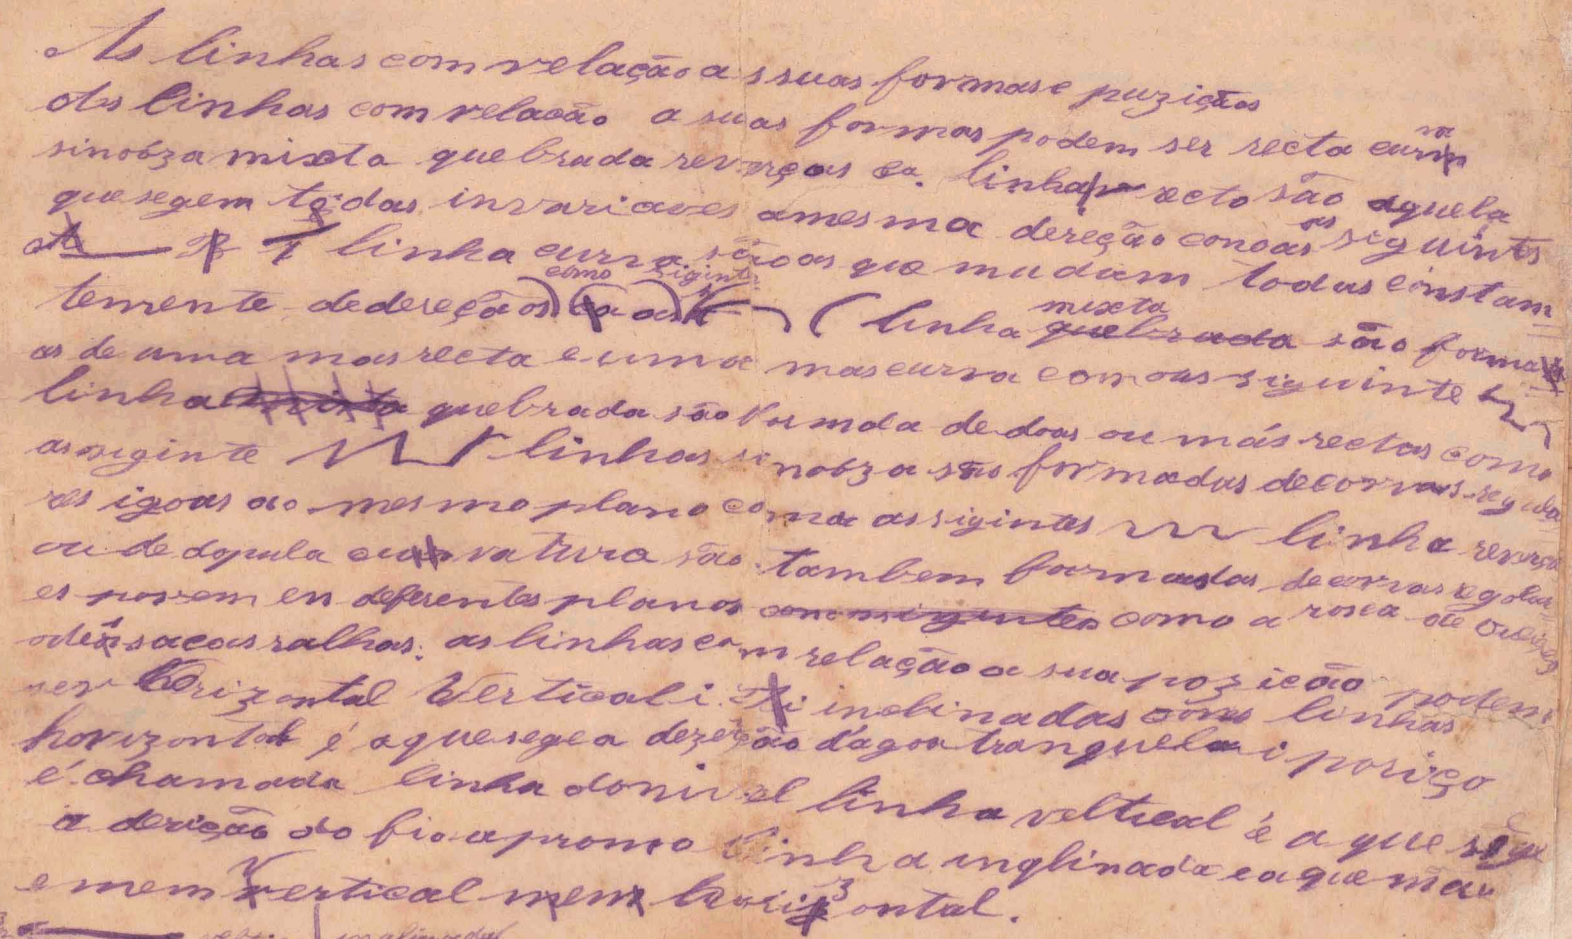 As linhas com relação a s suas formas e puzições
As linhas com relacão a suas formas podem ser recta curva
sinobza mixta quebrada reverças ea. linha recto são aquela
que segem todas invariaves amesma dereção conoas as siguintes
A linha curva são as que mudam todas cinstam
temente dedereçãos como siginte linha mixta quebrada são forma
as de uma mas recta e uma mas curva comoas siguinte
linha quebrada são formda de doas ou más rectas como
as siginte linhas sinobza são formadas de corvas regula
res igoas ao mesmo plano coma as sigintes linha reverça
ou de dopula curvatura são tambem formadas de corvas regolar
es porem en deferentes planos conomsigintes como a rosca de
odês sacas ralhas. as linhas com relação a sua pozicão podem
ser Orizontal Vertical i inclinadas como linhas
horizontal é aque sege a dezerção d'agoa tranquela i poriço
é chamada linha donivel linha veltical é a que sige
a dereção do fio apromo linha inglinada e aque mão
e mem vertical mem horizontal.